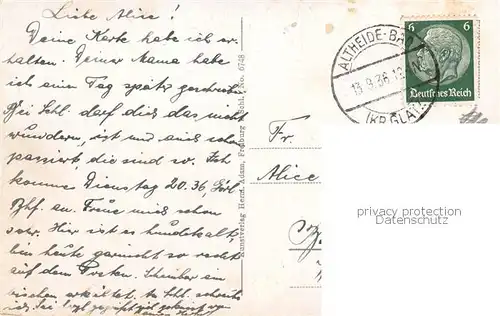 Liebe Alice!
Deine Karte habe ich er-
halten. Deiner Mama habe
ich einen Tag später geschrieben.
Bei Schl. darf dich das nicht
wundern, ist uns auch schon
passiert, die sind so. Ich
komme Dienstag 20.36, Görl.
Bhf. an. Freue mich schon
sehr. Hier ist es hundekalt,
bin heute garnicht so recht
auf dem Posten. Scheinbar ein
bischen erkältet.
Kunstverlag Herm. Adam, Freiburg i. Schl. No. 6748
ALTHEIDE-BAD
13.9.36
(KR. GLATZ)
6 6
Deutsches Reich
Fr.
Alice
privacy protection
Datenschutz